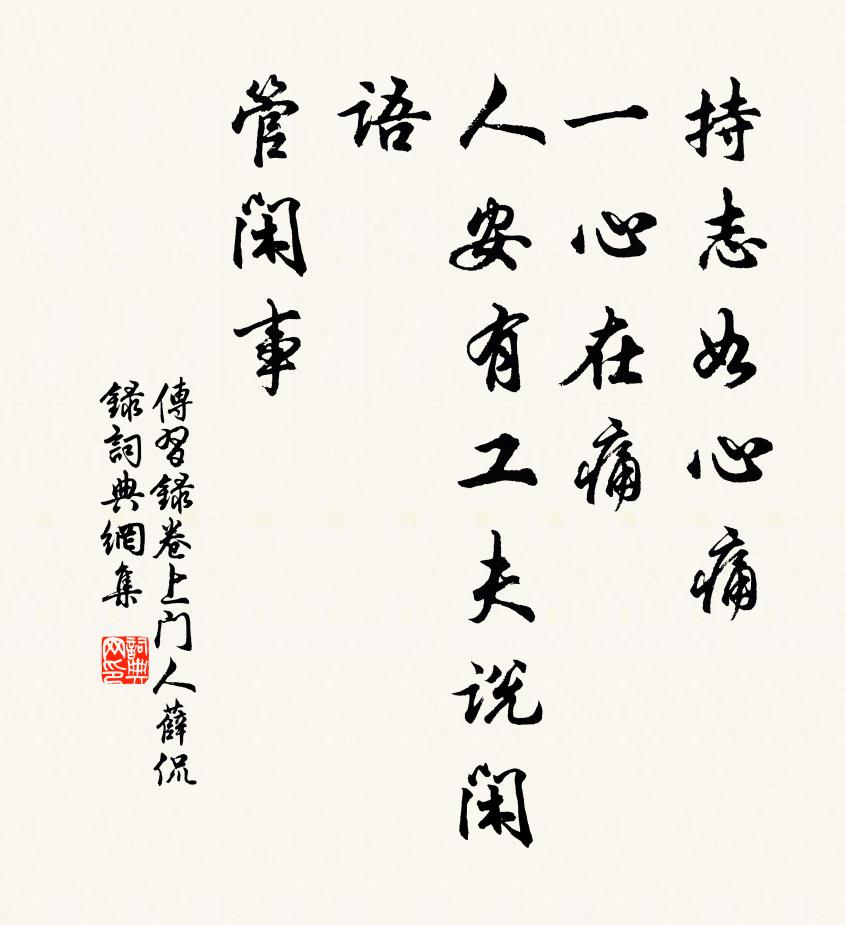 持志如心痛
一心在痛
人安有工夫说闲
语
管闲事
傳習録卷上门人薛侃
録詞典網集
詞典
网印